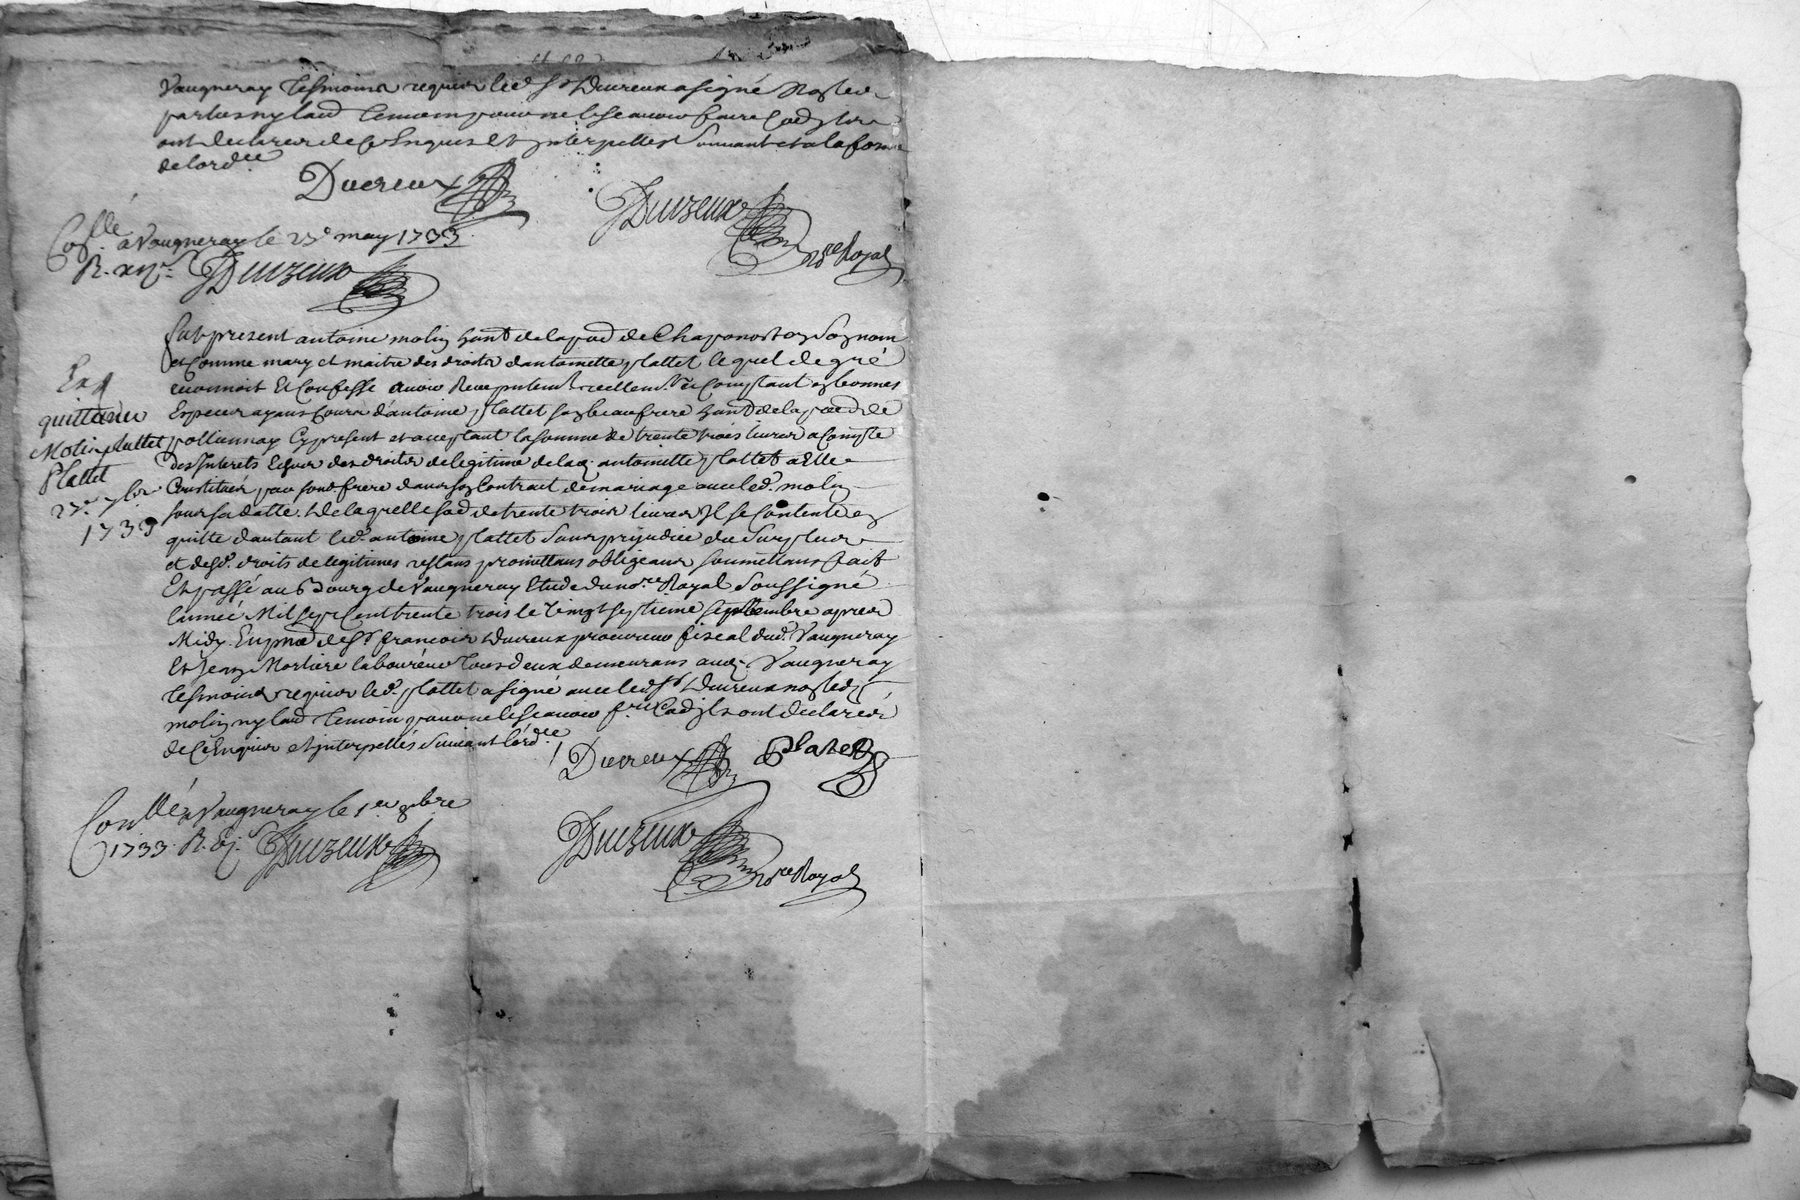 Vaugneray Tesmoins requis led. Sr Ducreux a signé
ne le scavoir faire
ont declarer de ce Enquis et interpellés suivant et a la forme
de lordce.
Ducreux
JDuizeux
nore Royal
Conllé a Vaugneray le 27e may 1733
R. xij s. JDuizeux
Fut present antoine molin hant de la pad de Chaponost en son nom
et Comme mary et maitre des droits dantoinette plattet lequel de gré
reconnoit Et Confesse avoir Receu reellemt Et Comptant en bonnes
Especes ayans Cours d'antoine plattet son beaufrere hant de la pad de
pollionnay Cy present et acceptant la somme de trente trois livres a Compte
des Interets Echus des droits de legitime de lad. antoinette plattet a Elle
Constitués par sond. frere dans son Contrat de mariage avec led. molin
sous sa datte. de laquelle sad de trente trois livres Il se Contente en
quitte dautant led. antoine plattet sans prejudice du surplus
et desd. droits de legitimes restans promettans obligeans soumettans fait
Et passé au Bourg de Vaugneray Etude du nore Royal soussigné
lannée Mil sept Cent trente trois le Vingt septieme septembre apres
Midy. En pnce de Sr francois Ducreux procureur fiscal dud. Vaugneray
Et Jean Morliere laboureur tous deux demeurans aud. Vaugneray
Tesmoins requis led. plattet a signé avec led. Sr Ducreux non led.
molin ny laud Temoin pour ne le scavoir fre Cad ils ont declaré
de ce Enquis et interpellés suivant lordce.
Ducreux Platet
JDuizeux
nore Royal
Enq
quittance
Molin plattet
Plattet
27e 7bre
1733
Conllé a Vaugneray le 1er 8bre
1733. R. JDuizeux